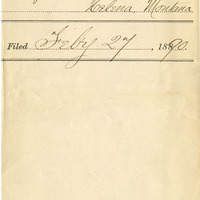 Helena, Montana
Filed Feby 27, 1890.